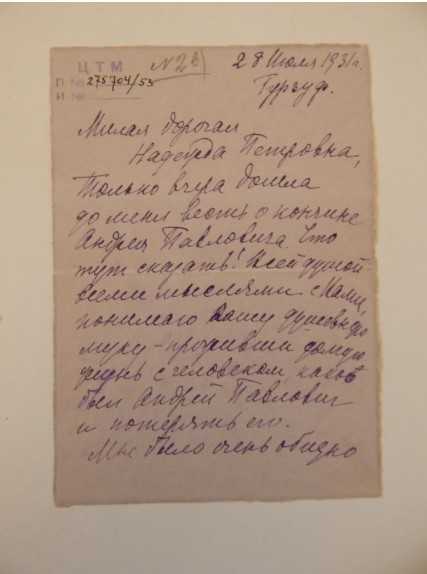 ЦТМ
№ 2 в)
П № 275704/53
И №
28 Июля 1931 г.
Гурзуф.
Милая дорогая
Надежда Петровна,
Только вчера дошла
до меня весть о кончине
Андрея Павловича. Что
тут сказать! Всей душой
всеми мыслями с Вами,
понимаю Вашу душевную
муку – проживши долгую
жизнь с человеком, каков
был Андрей Павлович
и потерять его.
Мне было очень обидно